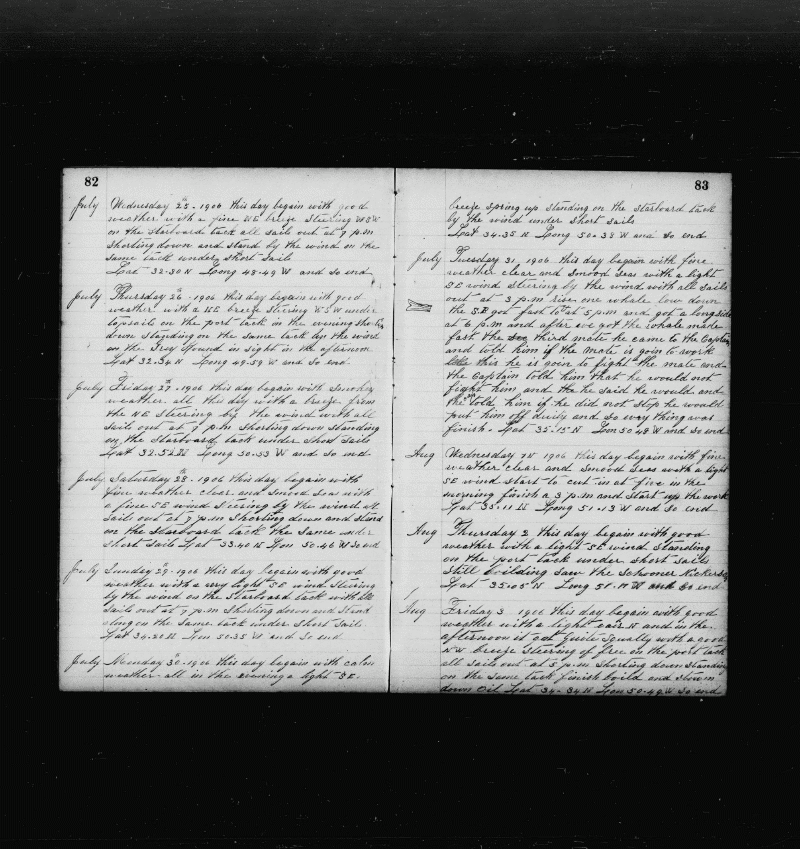 82
July Wednesday 25 - 1906 this day begain with good
weather with a fine NE breeze Steering WSW
on the starboard tack all sails out at 7 p.m
Shorting down and stand by the wind on the
same tack under short sails
Lat 32-30 N Long 49-49 W and So end
July Thursday 26 - 1906 this day begain with good
weather with a NE breeze Steering WSW under
topsails on the port tack in the evening
down standing on the same tack by the wind
on the in sight in the afternoon
Lat 32-34 N Long 49-59 W and So end
July Friday 27 - 1906 this day begain with
weather all this day with a breeze from
the NE Steering by the wind with all
sails out at 7 p.m Shorting down standing
on the Starboard tack under Short Sails
Lat Long W and So end
July Saturday 28 - 1906 this day begain with
fine weather clear and Smood Seas with
a fine SE wind Steering by the wind all
sails out at 7 p.m Shorting down and stand
on the Starboard tack the Same under
Short Sails Lat 33-40 N Lon 50-46 W So end
July Sunday 29 - 1906 this day begain with good
weather with a very light SE wind Steering
by the wind on the Starboard tack with all
Sails out at 7 p.m Shorting down and Stand
ding on the Same tack under Short Sails
Lat 34-20 N Lon 50-35 W and So end
July Monday 30 - 1906 this day begain with calm
weather all in the evening a light SE
83
breeze Spring up Standing on the Starboard tack
by the wind under Short Sails
Lat 34-35 N Long 50-38 W and So end
July Tuesday 31, 1906 this day begain with fine
weather clear and Smood Seas with a light
SE wind Steering by the wind with all sails
out at 3 p.m rise one whale low down
the got fast to at 5 p.m and got a long side
at 6 p.m and after we got the whale made
fast the third mate he came to the Captain
and told him if the mate is goin to work
like this he is goin to fight the mate and
the Captain told him that he would not
fight him and the he said he would and
the told him if he did not Stop he would
put him off duity and So every thing was
finish. Lat 35-15 N Lon 50 48 W and So end
Aug Wednesday 1 1906 this day begain with fine
weather clear and Smood Seas with a light
SE wind Start to cut in at five in the
morning finish a 3 p.m and Start up the work
Lat 35-11 N Long 51-13 W and So end
Aug Thursday 2 this day begain with good
weather with a light SE wind Standing
on the port tack under Short Sails
Still boilding Saw the Schooner
Lat 35-05 N Long W and So end
Aug Friday 3 1906 this day begain with good
weather with a light air N and in the
afternoon it get quite Squally with a good
NW breeze Steering of free on the port tack
all Sail out at 5 p.m Shorting down standing
on the Same tack finish boild and
down Oil Lat 34-34 N Lon 50-49 W So end